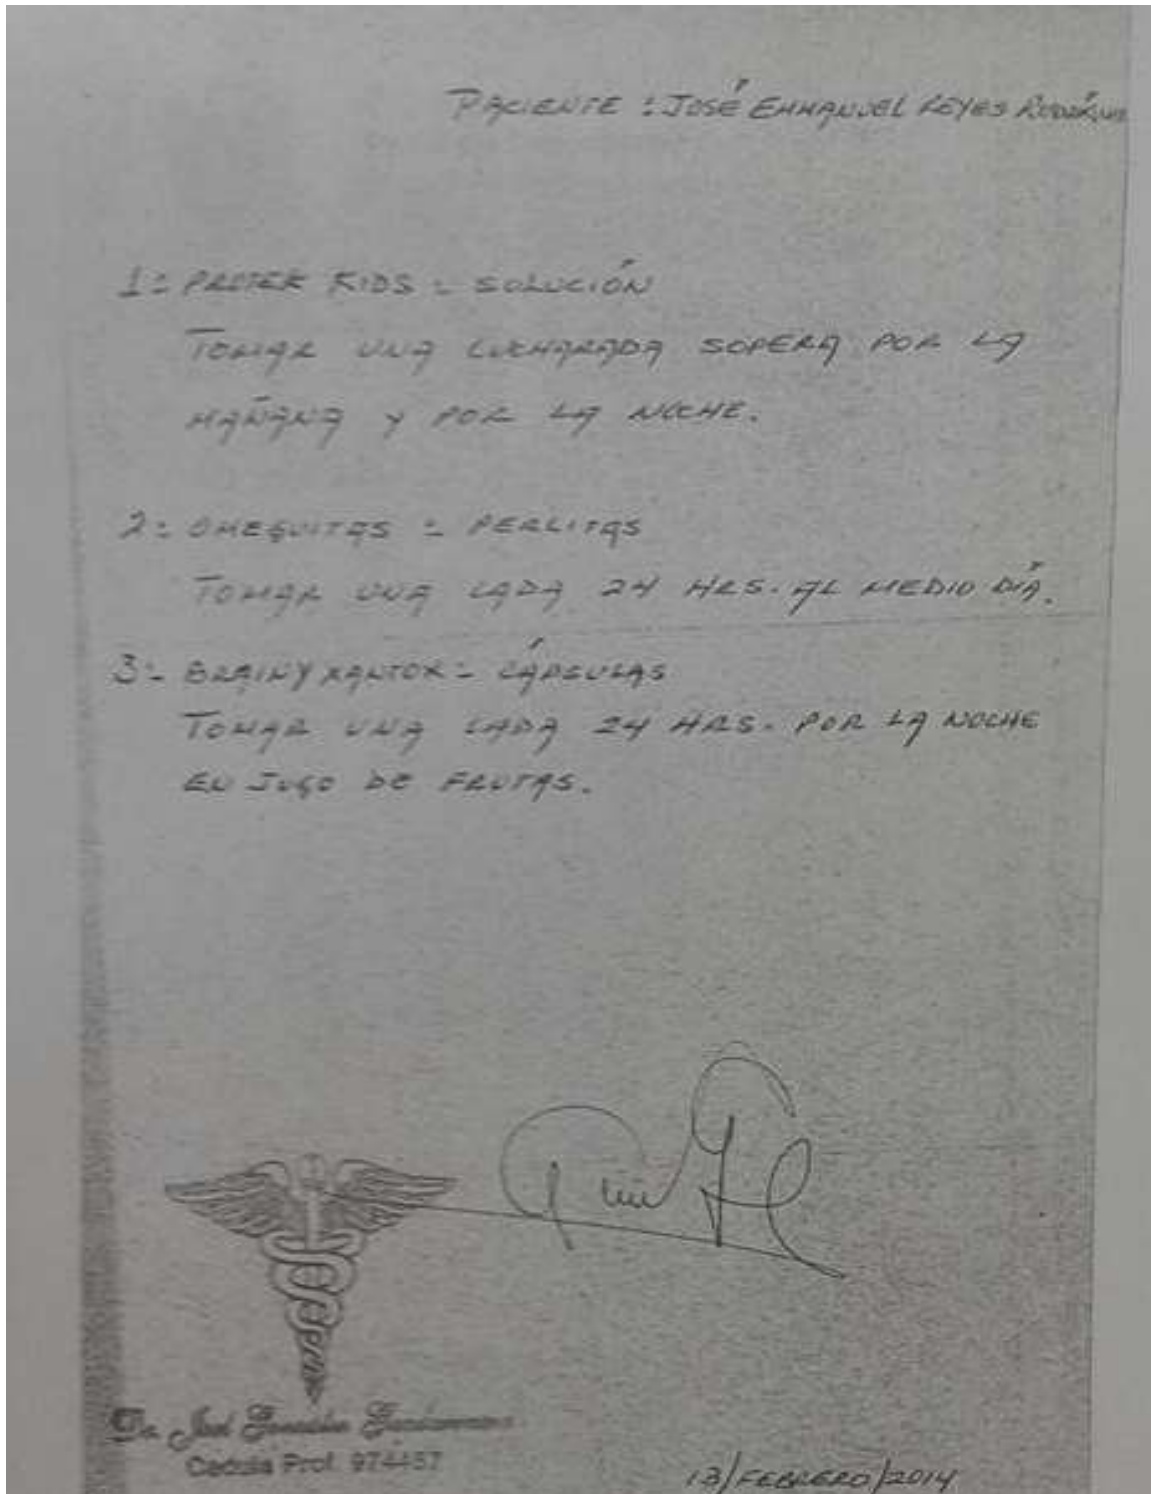 PACIENTE : JOSÉ EMMANUEL REYES
1- PROTEK KIDS - SOLUCIÓN
TOMAR UNA CUCHARADA SOPERA POR LA
MAÑANA Y POR LA NOCHE.
2- OMEGUITAS - PERLITAS
TOMAR UNA CADA 24 HRS. AL MEDIO DÍA.
3- BRAINY XANTOX - CÁPSULAS
TOMAR UNA CADA 24 HRS. POR LA NOCHE
EN JUGO DE FRUTAS.
Dr.
Cedula Prof. 974457
13/FEBRERO/2014